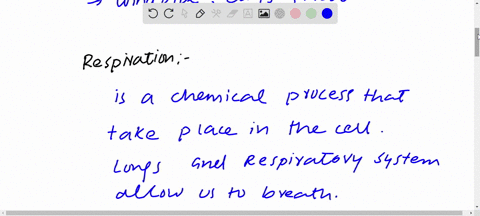 Respiration:-
is a chemical process that
take place in the cell.
Lungs and Respiratory system
allow us to breath.